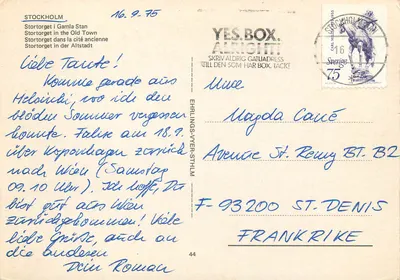 STOCKHOLM
Stortorget i Gamla Stan
Stortorget in the Old Town
Stortorget dans la cité ancienne
Stortorget in der Altstadt
16.9.75
Liebe Tante!
Komme gerade aus
Helsinki, wo ich den
blöden Sommer vergessen
konnte. Fahre am 18.9.
über Kopenhagen zurück
nach Wien (Samstag
09.10 Uhr). Ich hoffe, Du
bist gut aus Wien
zurückgekommen! Viele
liebe Grüße, auch an
die anderen
Dein Roman
EHRLINGS-VYER-STHLM
44
YES. BOX.
ALRIGHT!
SKRIV ALDRIG GATUADRESS
TILL DEN SOM HAR BOX. TACK!
STOCKHOLM
16
Sverige
75
Mme
Magda Cané
Avenue St. Remy BT. B2
F-93200 ST. DENIS
FRANKRIKE